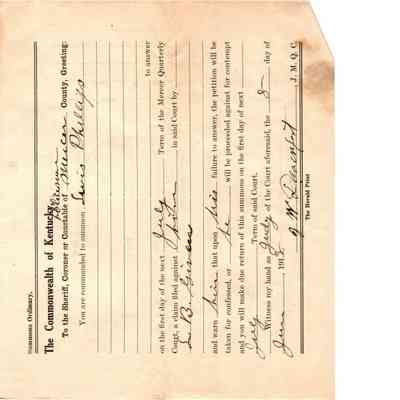 Summons Ordinary.
The Commonwealth of Kentucky,
To the Sheriff, Coroner or Constable of Mercer County, Greeting:
You are commanded to summon Lewis Phillips
to answer
on the first day of the next July Term of the Mercer Quarterly
Court, a claim filed against him in said Court by
L B Givens
and warn him that upon his failure to answer, the petition will be
taken for confessed, or he will be proceeded against for contempt
and you will make due return of this summons on the first day of next
July Term of said Court.
Witness my hand as Judge of the Court aforesaid, the 8 day of
June, 1912
J. M. Q. C.
The Herald Print